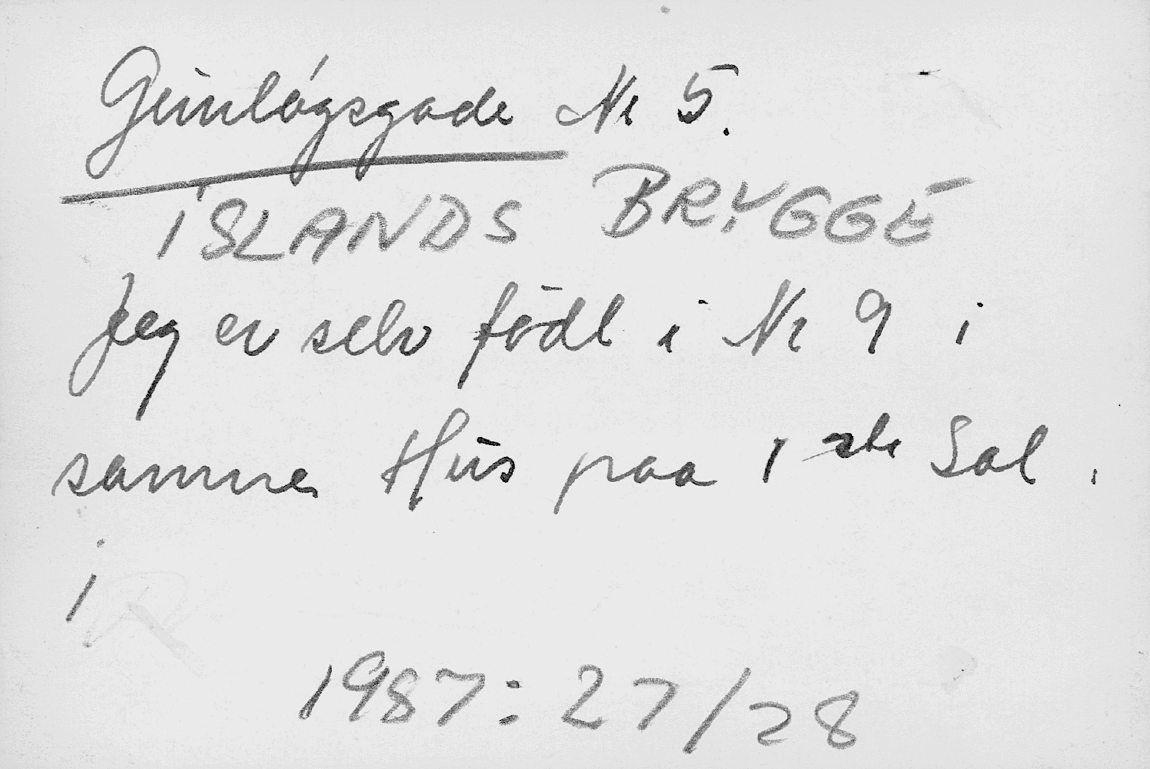 Gunløgsgade Nr 5.
ISLANDS BRYGGE
Jeg er selv född i Nr 9 i
samme Hus paa 1ste Sal.
i
1987:27/28